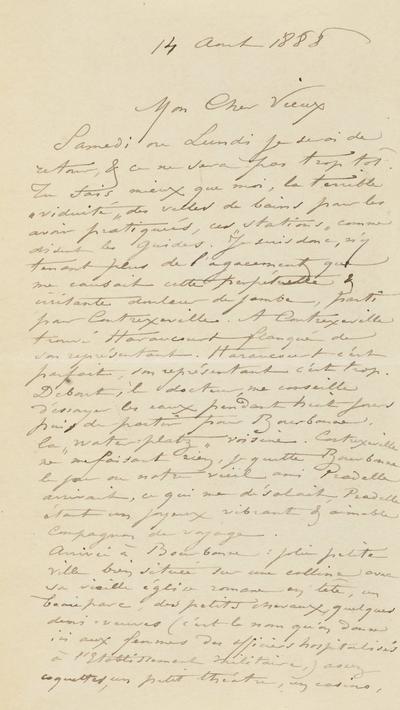 14 Aout 1888
Mon Cher Vieux
Samedi ou Lundi je serai de
retour, & ce ne sera pas trop tôt.
Tu sais mieux que moi, la terrible
"viduité" des villes de bains pour les
avoir pratiquées, ces "stations" comme
disent les Guides. Je suis donc, n'y
tenant plus de l'agacement que
me causait cette perpétuelle &
irritante douleur de jambe, parti
pour Contrexeville. A Contrexeville
trouvé Haraucourt flanqué de
son représentant. Haraucourt c'est
parfait, son représentant c'est trop.
Debout, le docteur, me conseille
d'essayer les eaux pendant huit jours
puis de partir pour Bourbonne,
la "water-platz" voisine. Contrexeville
ne me faisant rien, je quitte Bourbonne
le jour où notre vieil ami Pradelle
arrivait, ce qui me désolait, Pradelle
étant un joyeux vibrant & aimable
compagnon de voyage.
Arrivé à Bourbonne : jolie petite
ville bien située sur une colline avec
sa vieille église romane en tête, un
beau parc, des petits chevaux, quelques
demi-veuves (c'est le nom qu'on donne
ici aux femmes des officiers hospitalisés
à l'Etablissement militaire,) assez
coquettes, un petit théâtre, un casino,